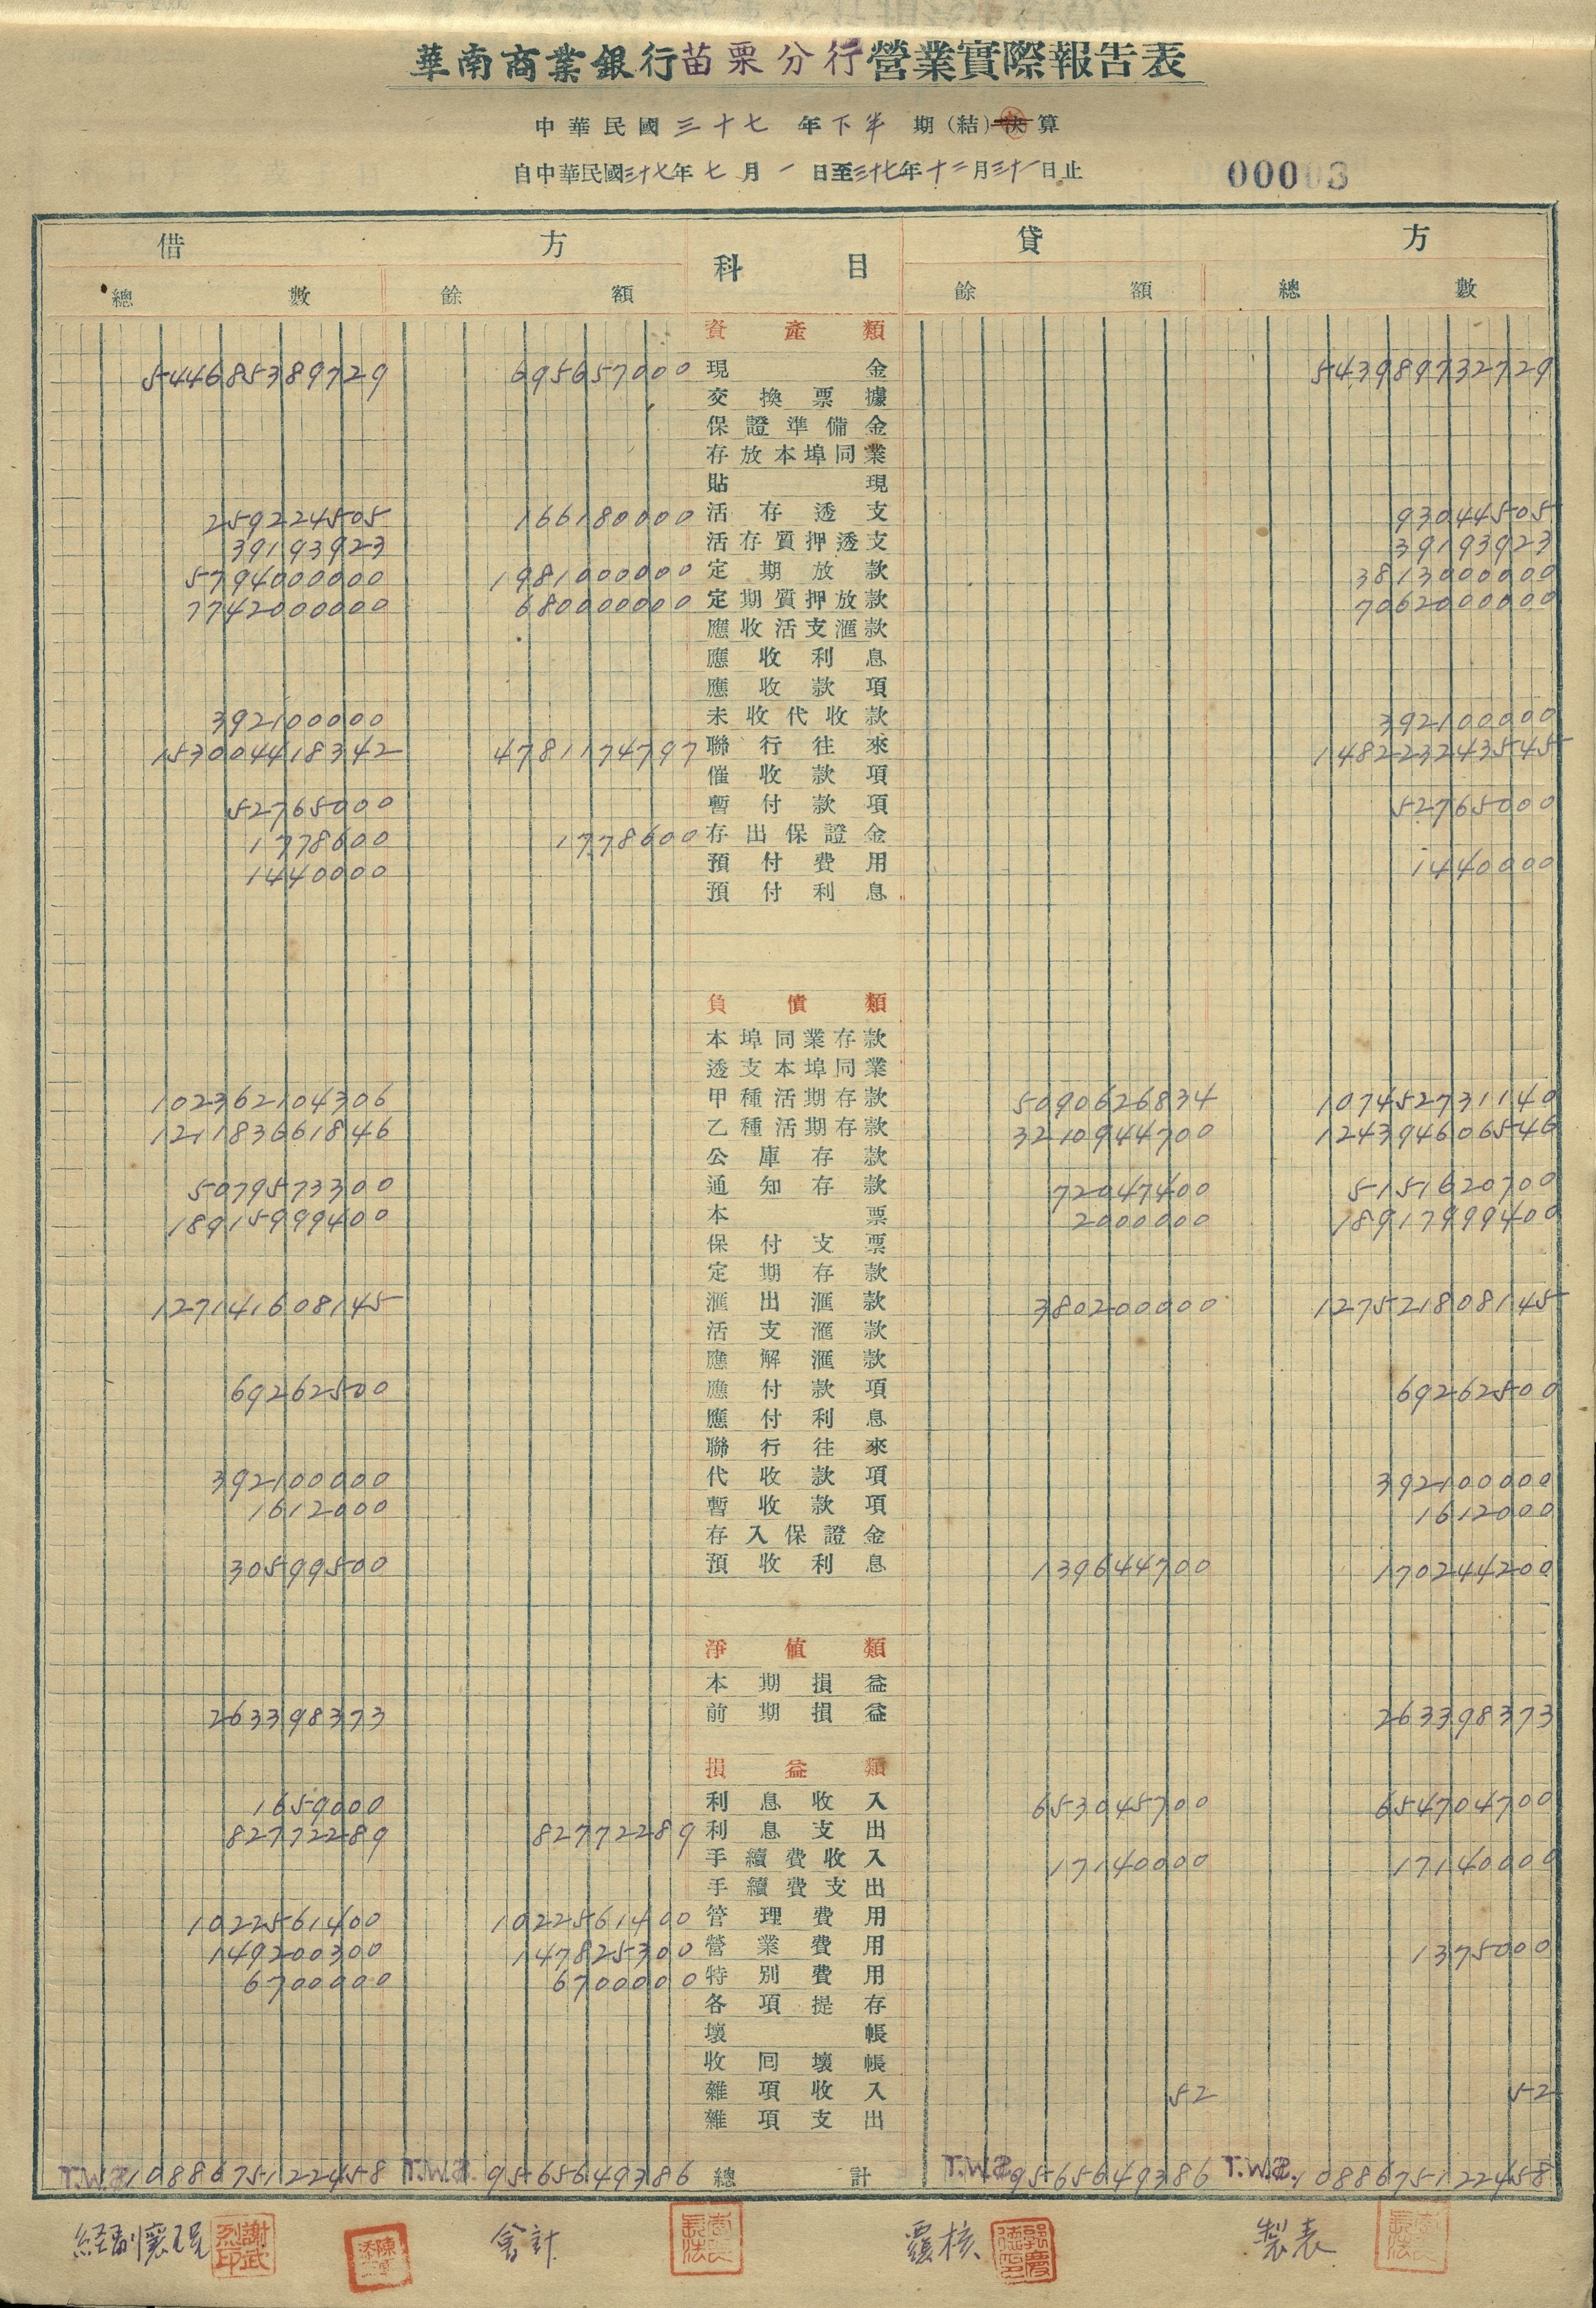 華南商業銀行苗栗分行營業實際報告表
中華民國三十七年下半期(結)決算
自中華民國三十七年七月一日至三十七年十二月三十一日止
00003
借方 科目 貸方
總數 餘額 餘額 總數
資產類
544685389729 695657000 現金 543989732729
交換票據
保證準備金
存放本埠同業
貼現
259224505 166180000 活存透支 93044505
39193923 活存質押透支 39193923
5794000000 1981000000 定期放款 3813000000
7742000000 680000000 定期質押放款 7062000000
應收活支滙款
應收利息
應收款項
392100000 未收代收款 392100000
153004418342 4781174797 聯行往來 148223243545
催收款項
52765000 暫付款項 52765000
1778600 1778600 存出保證金
1440000 預付費用 1440000
預付利息
負債類
本埠同業存款
透支本埠同業
102362104306 甲種活期存款 5090626834 107452731140
121183661846 乙種活期存款 3210944700 124394606546
公庫存款
5079573300 通知存款 72047400 5151620700
18915999400 本票 2000000 18917999400
保付支票
定期存款
127141608145 滙出滙款 380200000 127521808145
活支滙款
應解滙款
69262500 應付款項 69262500
應付利息
聯行往來
392100000 代收款項 392100000
1612000 暫收款項 1612000
存入保證金
30599500 預收利息 139644700 170244200
淨值類
本期損益
263398373 前期損益 263398373
損益類
1659000 利息收入 653045700 654704700
82772289 82772289 利息支出
手續費收入 17140000 17140000
手續費支出
1022561400 1022561400 管理費用
149200300 147825300 營業費用 1375000
6700000 6700000 特別費用
各項提存
壞帳
收回壞帳
雜項收入 52 52
雜項支出
T.W.$1088675122458 T.W.$.9565649386 總計 T.W.$9565649386 T.W.$.1088675122458
経副襄理 謝武烈印 會計 覆核 郭慶德印 製表